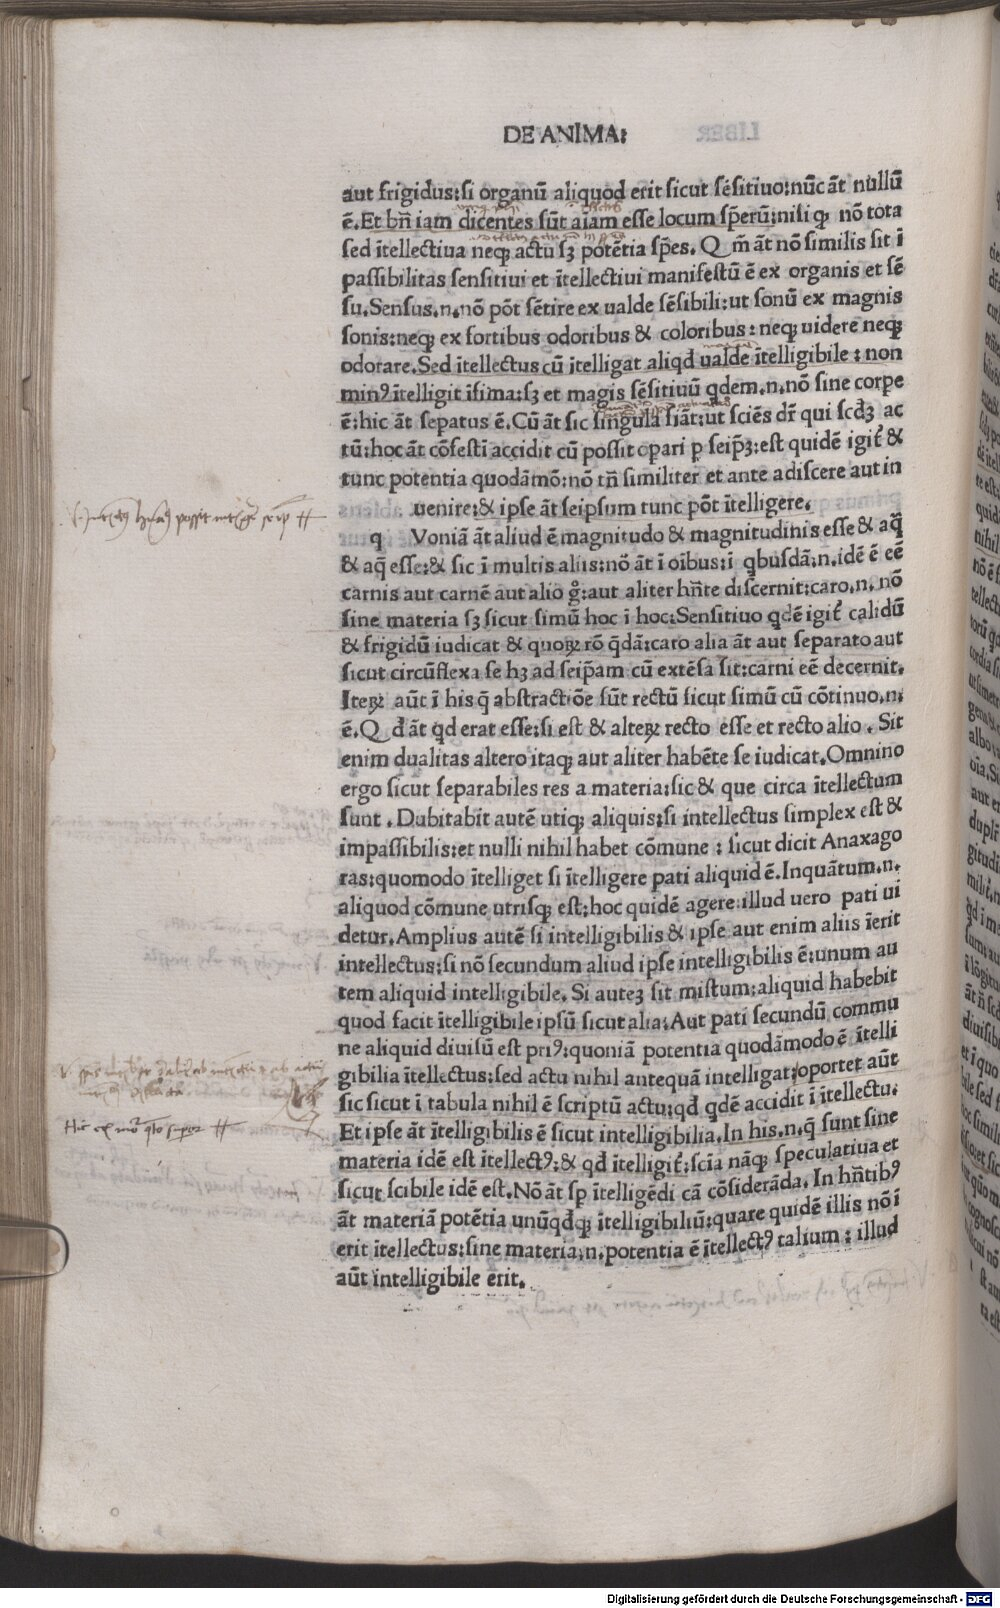 DE ANIMA:
aut frigidus: si organū aliquod erit sicut sēsitiuo: nūc āt nullū
ē. Et bn̄ iam dicentes sūt aiam esse locum sp̄erū: nisi qꝫ nō tota
sed ītellectiua neqꝫ actu sꝫ potētia sp̄es. Q m̄ āt nō similis sit ī
passibilitas sensitiui et ītellectiui manifestū ē ex organis et sē
su. Sensus. n. nō pōt sētire ex ualde sēsibili: ut sonū ex magnis
sonis: neqꝫ ex fortibus odoribus & coloribus: neqꝫ uidere neqꝫ
odorare. Sed ītellectus cū ītelligat aliqd̄ ualde ītelligibile: non
minꝰ ītelligit īfima: sꝫ et magis sēsitiuū qdem. n. nō sine corpe
ē: hic āt sepatus ē. Cū āt sic singula fiāt: ut sciēs dr̄ qui scd̄ꝫ ac
tū: hoc āt cōfestī accidit cū possit opari p seip̄ꝫ: est quidē igit̄ &
tunc potentia quodāmō: nō tn̄ similiter et ante adiscere aut in
uenire: & ipse āt seipsum tunc pōt ītelligere.
q Voniā āt aliud ē magnitudo & magnitudinis esse & aq̄
& aq̄ esse: & sic ī multis aliis: nō āt ī oībus: ī qbusdā. n. idē ē eē
carnis aut carnē aut alio g̊: aut aliter hn̄te discernit: caro. n. nō
sine materia sꝫ sicut simū hoc ī hoc: Sensitiuo qdē igit̄ calidū
& frigidū iudicat & quoꝝ rō q̄dā: caro alia āt aut separato aut
sicut circūflexa se hꝫ ad seip̄am cū extēsa sit: carni eē decernit.
Iteꝝ aūt ī his q̄ abstractiōe sūt rectū sicut simū cū cōtinuo. n.
ē. Q d̄ āt qd erat esse: si est & alteꝝ recto esse et recto alio. Sit
enim dualitas altero itaqꝫ aut aliter habēte se iudicat. Omnino
ergo sicut separabiles res a materia: sic & que circa ītellectum
sunt. Dubitabit autē utiqꝫ aliquis: si intellectus simplex est &
impassibilis: et nulli nihil habet cōmune: sicut dicit Anaxago
ras: quomodo ītelliget si ītelligere pati aliquid ē. Inquātum. n.
aliquod cōmune utrisqꝫ est: hoc quidē agere: illud uero pati ui
detur. Amplius autē si intelligibilis & ipse aut enim aliis īerit
intellectus: si nō secundum aliud ipse intelligibilis ē: unum au
tem aliquid intelligibile. Si auteꝫ sit mistum: aliquid habebit
quod facit ītelligibile ipsū sicut alia: Aut pati secundū commu
ne aliquid diuisū est priꝰ: quoniā potentia quodāmodo ē ītelli
gibilia ītellectus: sed actu nihil antequā intelligat: oportet aūt
sic sicut ī tabula nihil ē scriptū actu: qd̄ qdē accidit ī ītellectu.
Et ipse āt ītelligibilis ē sicut intelligibilia. In his. n. q̄ sunt sine
materia idē est ītellectꝰ: & qd̄ ītelligit̄: scīa nāqꝫ speculatiua et
sicut scibile idē est. Nō āt sp ītelligēdi cā cōsiderāda. In hn̄tibꝰ
āt materiā potētia unūqd̄qꝫ ītelligibiliū: quare quidē illis nō ī
erit ītellectus: sine materia. n. potentia ē ītellectꝰ talium: illud
aūt intelligibile erit.
Digitalisierung gefördert durch die Deutsche Forschungsgemeinschaft - DFG